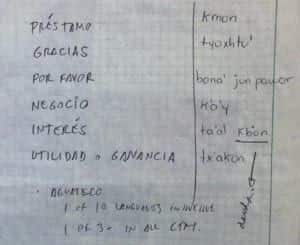 PRÉSTAMO kmon
GRACIAS tyoxhtu'
POR FAVOR bona' jun pawor
NEGOCIO k'o'y
INTERÉS ta'al k'b'on
UTILIDAD o GANANCIA tx'akon
· AGUATECO
1 of 10 LANGUAGES IN
1 OF 3+ IN ALL GTM.